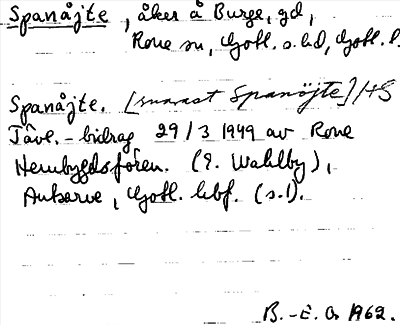 Spanåjte, åker å Burge, gd,
Rone sn, Gotl. s. hd, Gotl. l.
Spanåjte. [snarast Spanöjte] / HS
Tävl.-bidrag 29/3 1949 av Rone
Hembygdsfören. (E. Wahlby),
Autsarve, Gotl. hbf. (s.1).
B.-E. O. 1962.